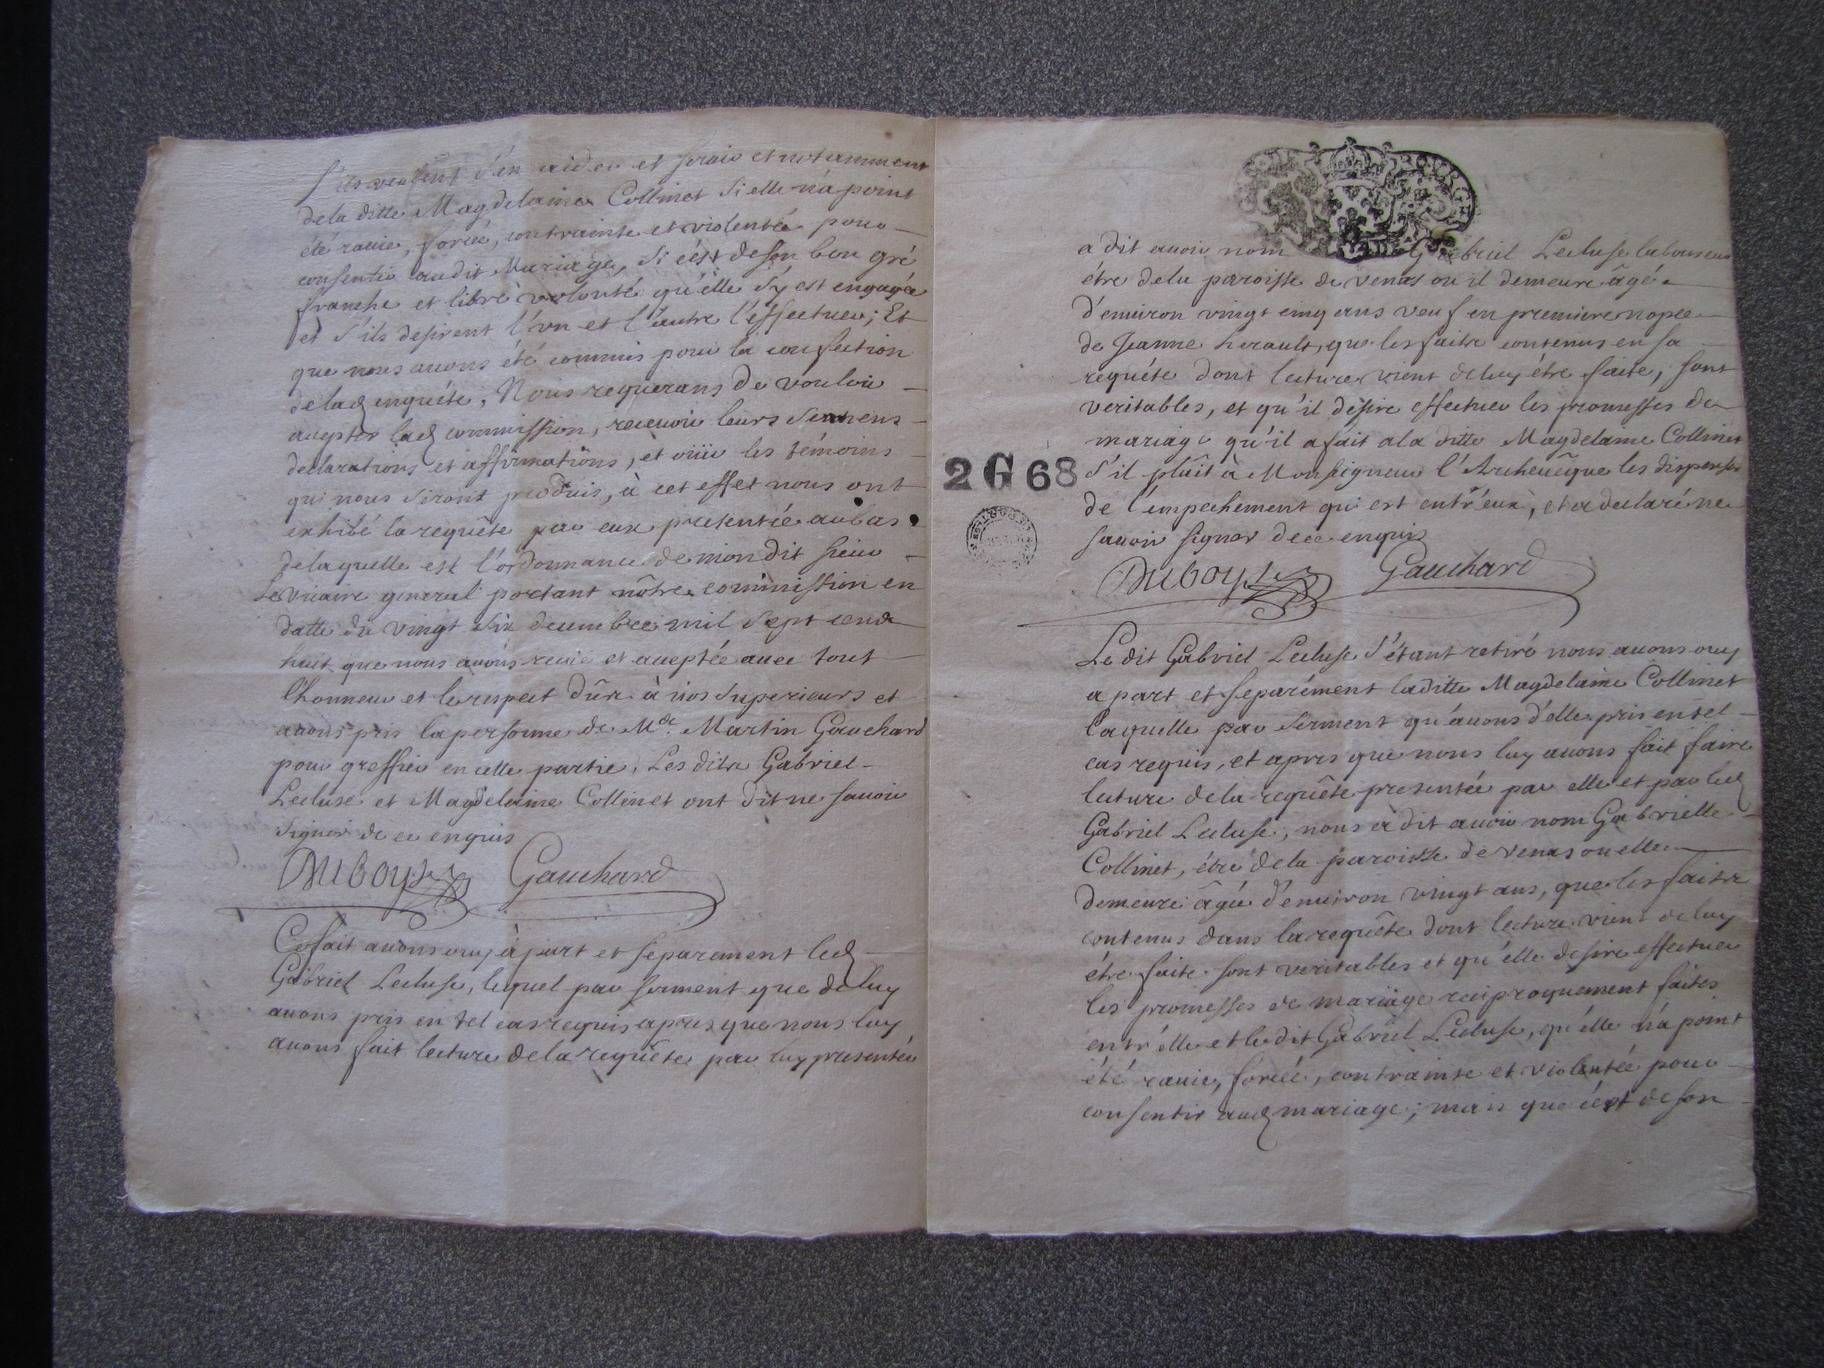 s'ils veulent s'en aider et servir et notamment
de la ditte Magdelaine Collinet si elle n'a point
été ravie, forcée, contrainte et violentée pour
consentir audit Mariage, si c'est de son bon gré
franche et libre volonté qu'elle s'y est engagée
et s'ils desirent l'un et l'autre l'effectuer; Et
que nous avons été commis pour la confection
de lad enquéte, Nous requerans de vouloir
accepter lad commission, recevoir leurs sermens
declarations et affirmations, et oüir les témoins
qui nous seront produis, à cet effet nous ont
exhibé la requête par eux presentée au bas
de laquelle est l'ordonnance de mondit sieur
Le vicaire general portant nôtre commission en
datte du vingt six decembre mil sept cent
huit que nous avons reçüe et acceptée avec tout
l'honneur et le respect dûs à nos superieurs et
avons pris la personne de Me. Martin Gauchard
pour greffier en cette partie, Les dits Gabriel
Lecluse et Magdelaine Collinet ont dit ne savoir
signer de ce enquis
Duboys Gauchard
Ce fait avons ouy à part et séparement led
Gabriel Lecluse, lequel par serment que de luy
avons pris en tel cas requis apres que nous luy
avons fait lecture de la requête par luy presentée
a dit avoir nom Gabriel Lecluse laboureur
étre de la paroisse de venas ou il demeure âgé
d'environ vingt cinq ans veuf en premiere nopce
de Jeanne herault, que les faits contenus en sa
requéte dont lecture vient de luy étre faite, sont
veritables, et qu'il désire effectuer les promesses de
mariage qu'il a fait a la ditte Magdelaine Collinet
s'il plâit à Monseigneur l'Archevêque les dispenser
de l'empechement qui est entr'eux, et a declaré ne
savoir signer de ce enquis
2 G 68
Duboys Gauchard
Le dit Gabriel Lecluse s'étant retiré nous avons ouy
a part et separément laditte Magdelaine Collinet
laquelle par serment qu'avons d'elle pris en tel
cas requis, et apres que nous luy avons fait faire
lecture de la requête presentée par elle et par led
Gabriel Lecluse, nous a dit avoir nom Gabrielle
Collinet, étre de la paroisse de venas ou elle
demeure âgée d'environ vingt ans, que les faits
contenus dans la requête dont lecture vient de luy
étre faite sont veritables et qu'elle desire effectuer
les promesses de mariage reciproquement faites
entr'elle et le dit Gabriel Lecluse, qu'elle n'a point
été ravie, forcée, contrainte et violentée pour
consentir aud mariage; mais que c'est de son